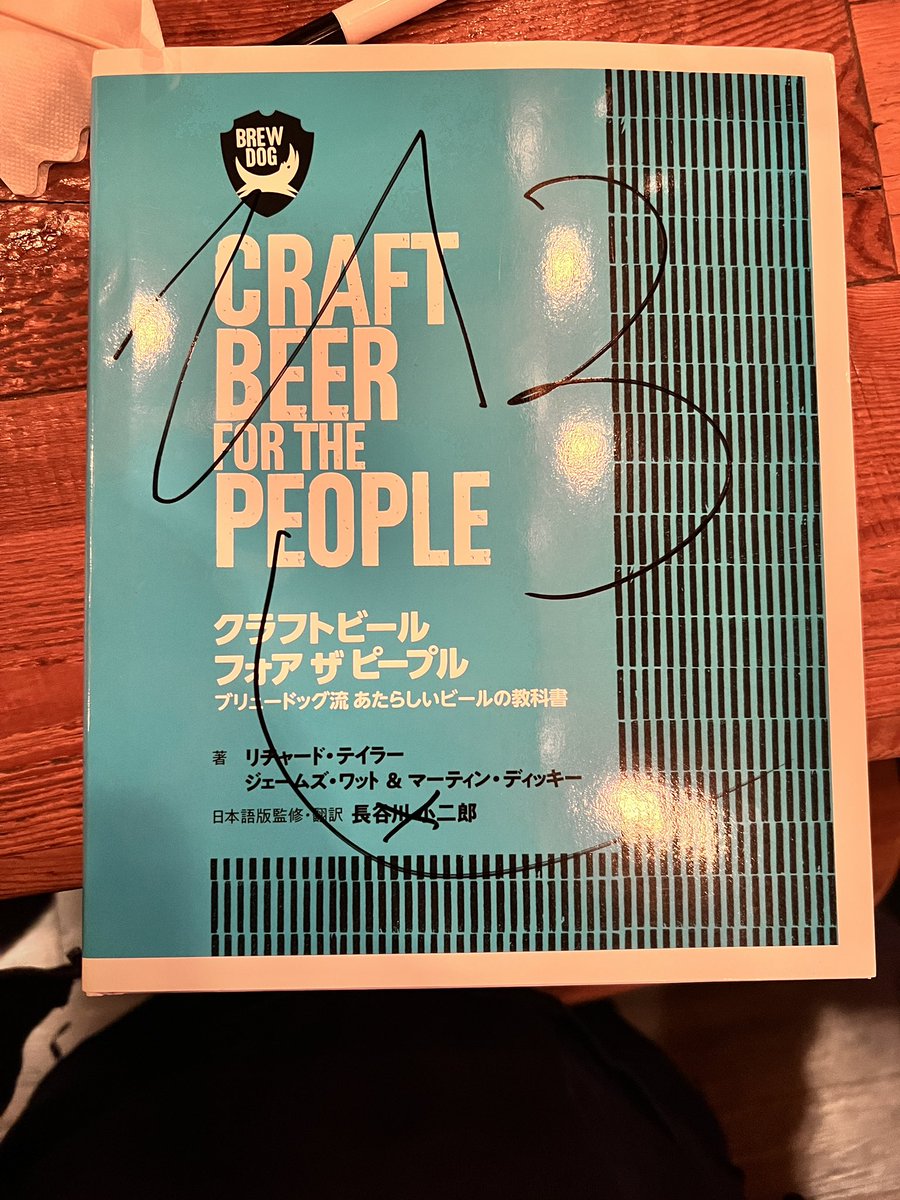 BREW
DOG
CRAFT
BEER
FOR THE
PEOPLE
クラフトビール
フォア ザ ピープル
ブリュードッグ流 あたらしいビールの教科書
著 リチャード・テイラー
ジェームズ・ワット & マーティン・ディッキー
日本語版監修・翻訳 長谷川小二郎